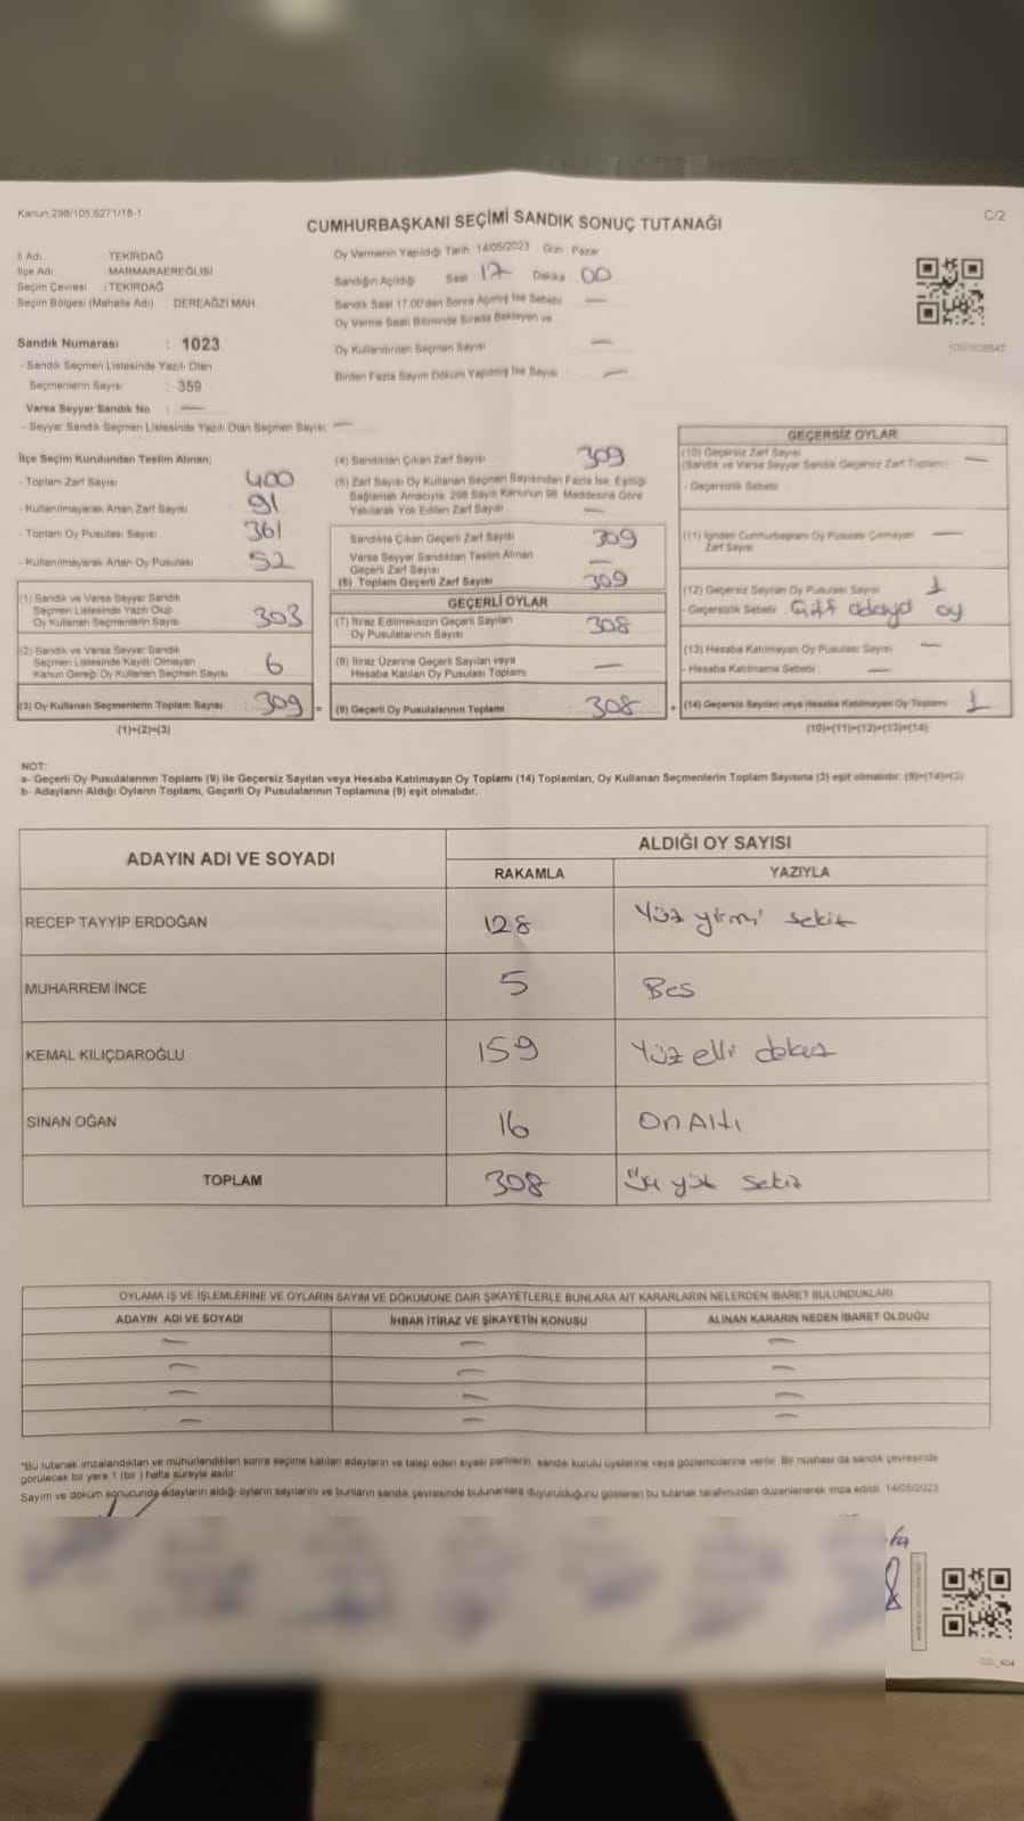 Kanun 298/105,6271/18-1
C/2
CUMHURBAŞKANI SEÇİMİ SANDIK SONUÇ TUTANAĞI
İl Adı : TEKİRDAĞ
İlçe Adı : MARMARAEREĞLİSİ
Seçim Çevresi : TEKİRDAĞ
Seçim Bölgesi (Mahalle Adı) : DEREAĞZI MAH.
Sandık Numarası : 1023
- Sandık Seçmen Listesinde Yazılı Olan
Seçmenlerin Sayısı : 359
Varsa Seyyar Sandık No : —
- Seyyar Sandık Seçmen Listesinde Yazılı Olan Seçmen Sayısı: —
Oy Vermenin Yapıldığı Tarih: 14/05/2023 Gün: Pazar
Sandığın Açıldığı Saat 17 Dakika 00
Sandık Saat 17.00'den Sonra Açılmış İse Sebebi —
Oy Verme Saati Bitiminde Sırada Bekleyen ve
Oy Kullandırılan Seçmen Sayısı —
Birden Fazla Sayım Döküm Yapılmış İse Sayısı —
İlçe Seçim Kurulundan Teslim Alınan;
- Toplam Zarf Sayısı 400
- Kullanılmayarak Artan Zarf Sayısı 91
- Toplam Oy Pusulası Sayısı 361
- Kullanılmayarak Artan Oy Pusulası 52
(1) Sandık ve Varsa Seyyar Sandık
Seçmen Listesinde Yazılı Olup
Oy Kullanan Seçmenlerin Sayısı 303
(2) Sandık ve Varsa Seyyar Sandık
Seçmen Listesinde Kayıtlı Olmayan
Kanun Gereği Oy Kullanan Seçmen Sayısı 6
(3) Oy Kullanan Seçmenlerin Toplam Sayısı 309 =
(1)+(2)=(3)
(4) Sandıktan Çıkan Zarf Sayısı 309
(5) Zarf Sayısı Oy Kullanan Seçmen Sayısından Fazla İse, Eşitliği
Sağlamak Amacıyla, 298 Sayılı Kanunun 98. Maddesine Göre
Yakılarak Yok Edilen Zarf Sayısı —
Sandıkta Çıkan Geçerli Zarf Sayısı 309
Varsa Seyyar Sandıktan Teslim Alınan
Geçerli Zarf Sayısı —
(6) Toplam Geçerli Zarf Sayısı 309
GEÇERLİ OYLAR
(7) İtiraz Edilmeksizin Geçerli Sayılan
Oy Pusulalarının Sayısı 308
(8) İtiraz Üzerine Geçerli Sayılan veya
Hesaba Katılan Oy Pusulası Toplamı —
(9) Geçerli Oy Pusulalarının Toplamı 308 +
GEÇERSİZ OYLAR
(10) Geçersiz Zarf Sayısı
(Sandık ve Varsa Seyyar Sandık Geçersiz Zarf Toplamı) —
- Geçersizlik Sebebi
(11) İçinden Cumhurbaşkanı Oy Pusulası Çıkmayan
Zarf Sayısı —
(12) Geçersiz Sayılan Oy Pusulası Sayısı 1
- Geçersizlik Sebebi : Çift adayd oy
(13) Hesaba Katılmayan Oy Pusulası Sayısı —
- Hesaba Katılmama Sebebi : —
(14) Geçersiz Sayılan veya Hesaba Katılmayan Oy Toplamı 1
(10)+(11)+(12)+(13)=(14)
NOT:
a- Geçerli Oy Pusulalarının Toplamı (9) ile Geçersiz Sayılan veya Hesaba Katılmayan Oy Toplamı (14) Toplamları, Oy Kullanan Seçmenlerin Toplam Sayısına (3) eşit olmalıdır. (9)+(14)=(3)
b- Adayların Aldığı Oyların Toplamı, Geçerli Oy Pusulalarının Toplamına (9) eşit olmalıdır.
ADAYIN ADI VE SOYADI
ALDIĞI OY SAYISI
RAKAMLA YAZIYLA
RECEP TAYYİP ERDOĞAN 128 Yüz yirmi sekiz
MUHARREM İNCE 5 Bes
KEMAL KILIÇDAROĞLU 159 Yüz elli dokuz
SİNAN OĞAN 16 On Altı
TOPLAM 308 üç yüz sekiz
OYLAMA İŞ VE İŞLEMLERİNE VE OYLARIN SAYIM VE DÖKÜMÜNE DAİR ŞİKAYETLERLE BUNLARA AİT KARARLARIN NELERDEN İBARET BULUNDUKLARI
ADAYIN ADI VE SOYADI İHBAR İTİRAZ VE ŞİKAYETİN KONUSU ALINAN KARARIN NEDEN İBARET OLDUĞU
— — —
— — —
— — —
— — —
"Bu tutanak imzalandıktan ve mühürlendikten sonra seçime katılan adayların ve talep eden siyasi partilerin, sandık kurulu üyelerine veya gözlemcilerine verilir. Bir nüshası da sandık çevresinde
görülecek bir yere 1 (bir) hafta süreyle asılır.
Sayım ve döküm sonucunda adayların aldığı oyların sayılarını ve bunların sandık çevresinde bulunanlara duyurulduğunu gösteren bu tutanak tarafımızdan düzenlenerek imza edildi. 14/05/2023